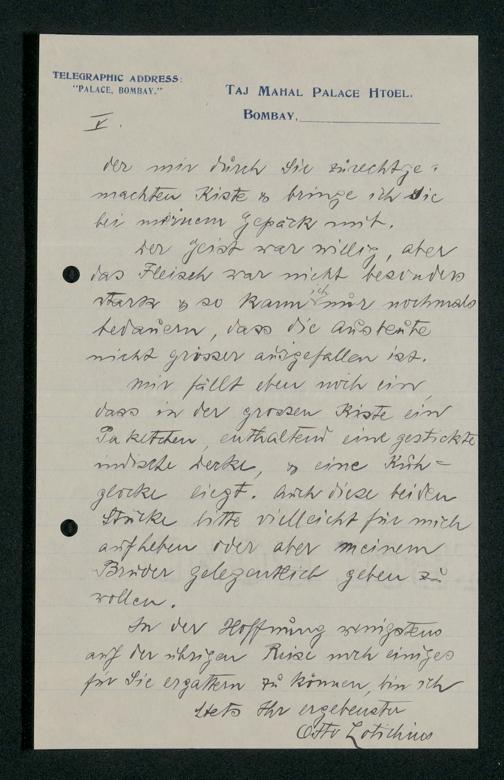 TELEGRAPHIC ADDRESS:
"PALACE, BOMBAY."
TAJ MAHAL PALACE HTOEL.
BOMBAY,
V.
der mir durch Sie zurechtge-
machten Kiste & bringe ich sie
bei meinem Gepäck mit.
Der Geist war willig, aber
das Fleisch war nicht besonders
stark & so kann ich nur nochmals
bedauern, dass die Ausbeute
nicht grösser ausgefallen ist.
Mir fällt eben noch ein,
dass in der grossen Kiste ein
Paketchen, enthaltend eine gestickte
indische Decke, & eine Kuh-
glocke liegt. Auch diese beiden
Stücke bitte vielleicht für mich
aufheben oder aber meinem
Bruder gelegentlich geben zu
wollen.
In der Hoffnung wenigstens
auf der übrigen Reise noch einiges
für Sie ergattern zu können, bin ich
stets Ihr ergebenster
Otto Lotichius